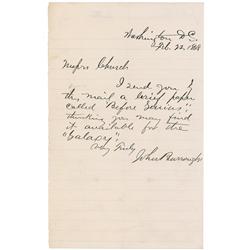 Washington D.C.
Feb. 22, 1868
Messrs Church
I send you by
this mail a brief paper
called "Before Genius",
thinking you may find
it available for the
"Galaxy"
Very Truly
John Burroughs